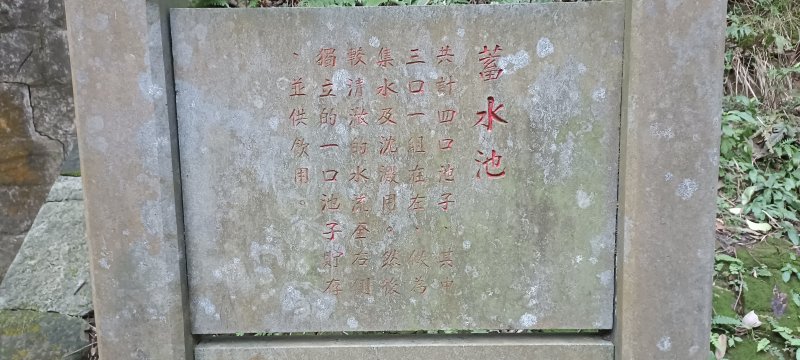 蓄水池
共計四口池子、其中
三口一組在左、做為
集水及沈澱用。然後
較清澈的水流至右側
獨立的一口池子貯存
、並供飲用。